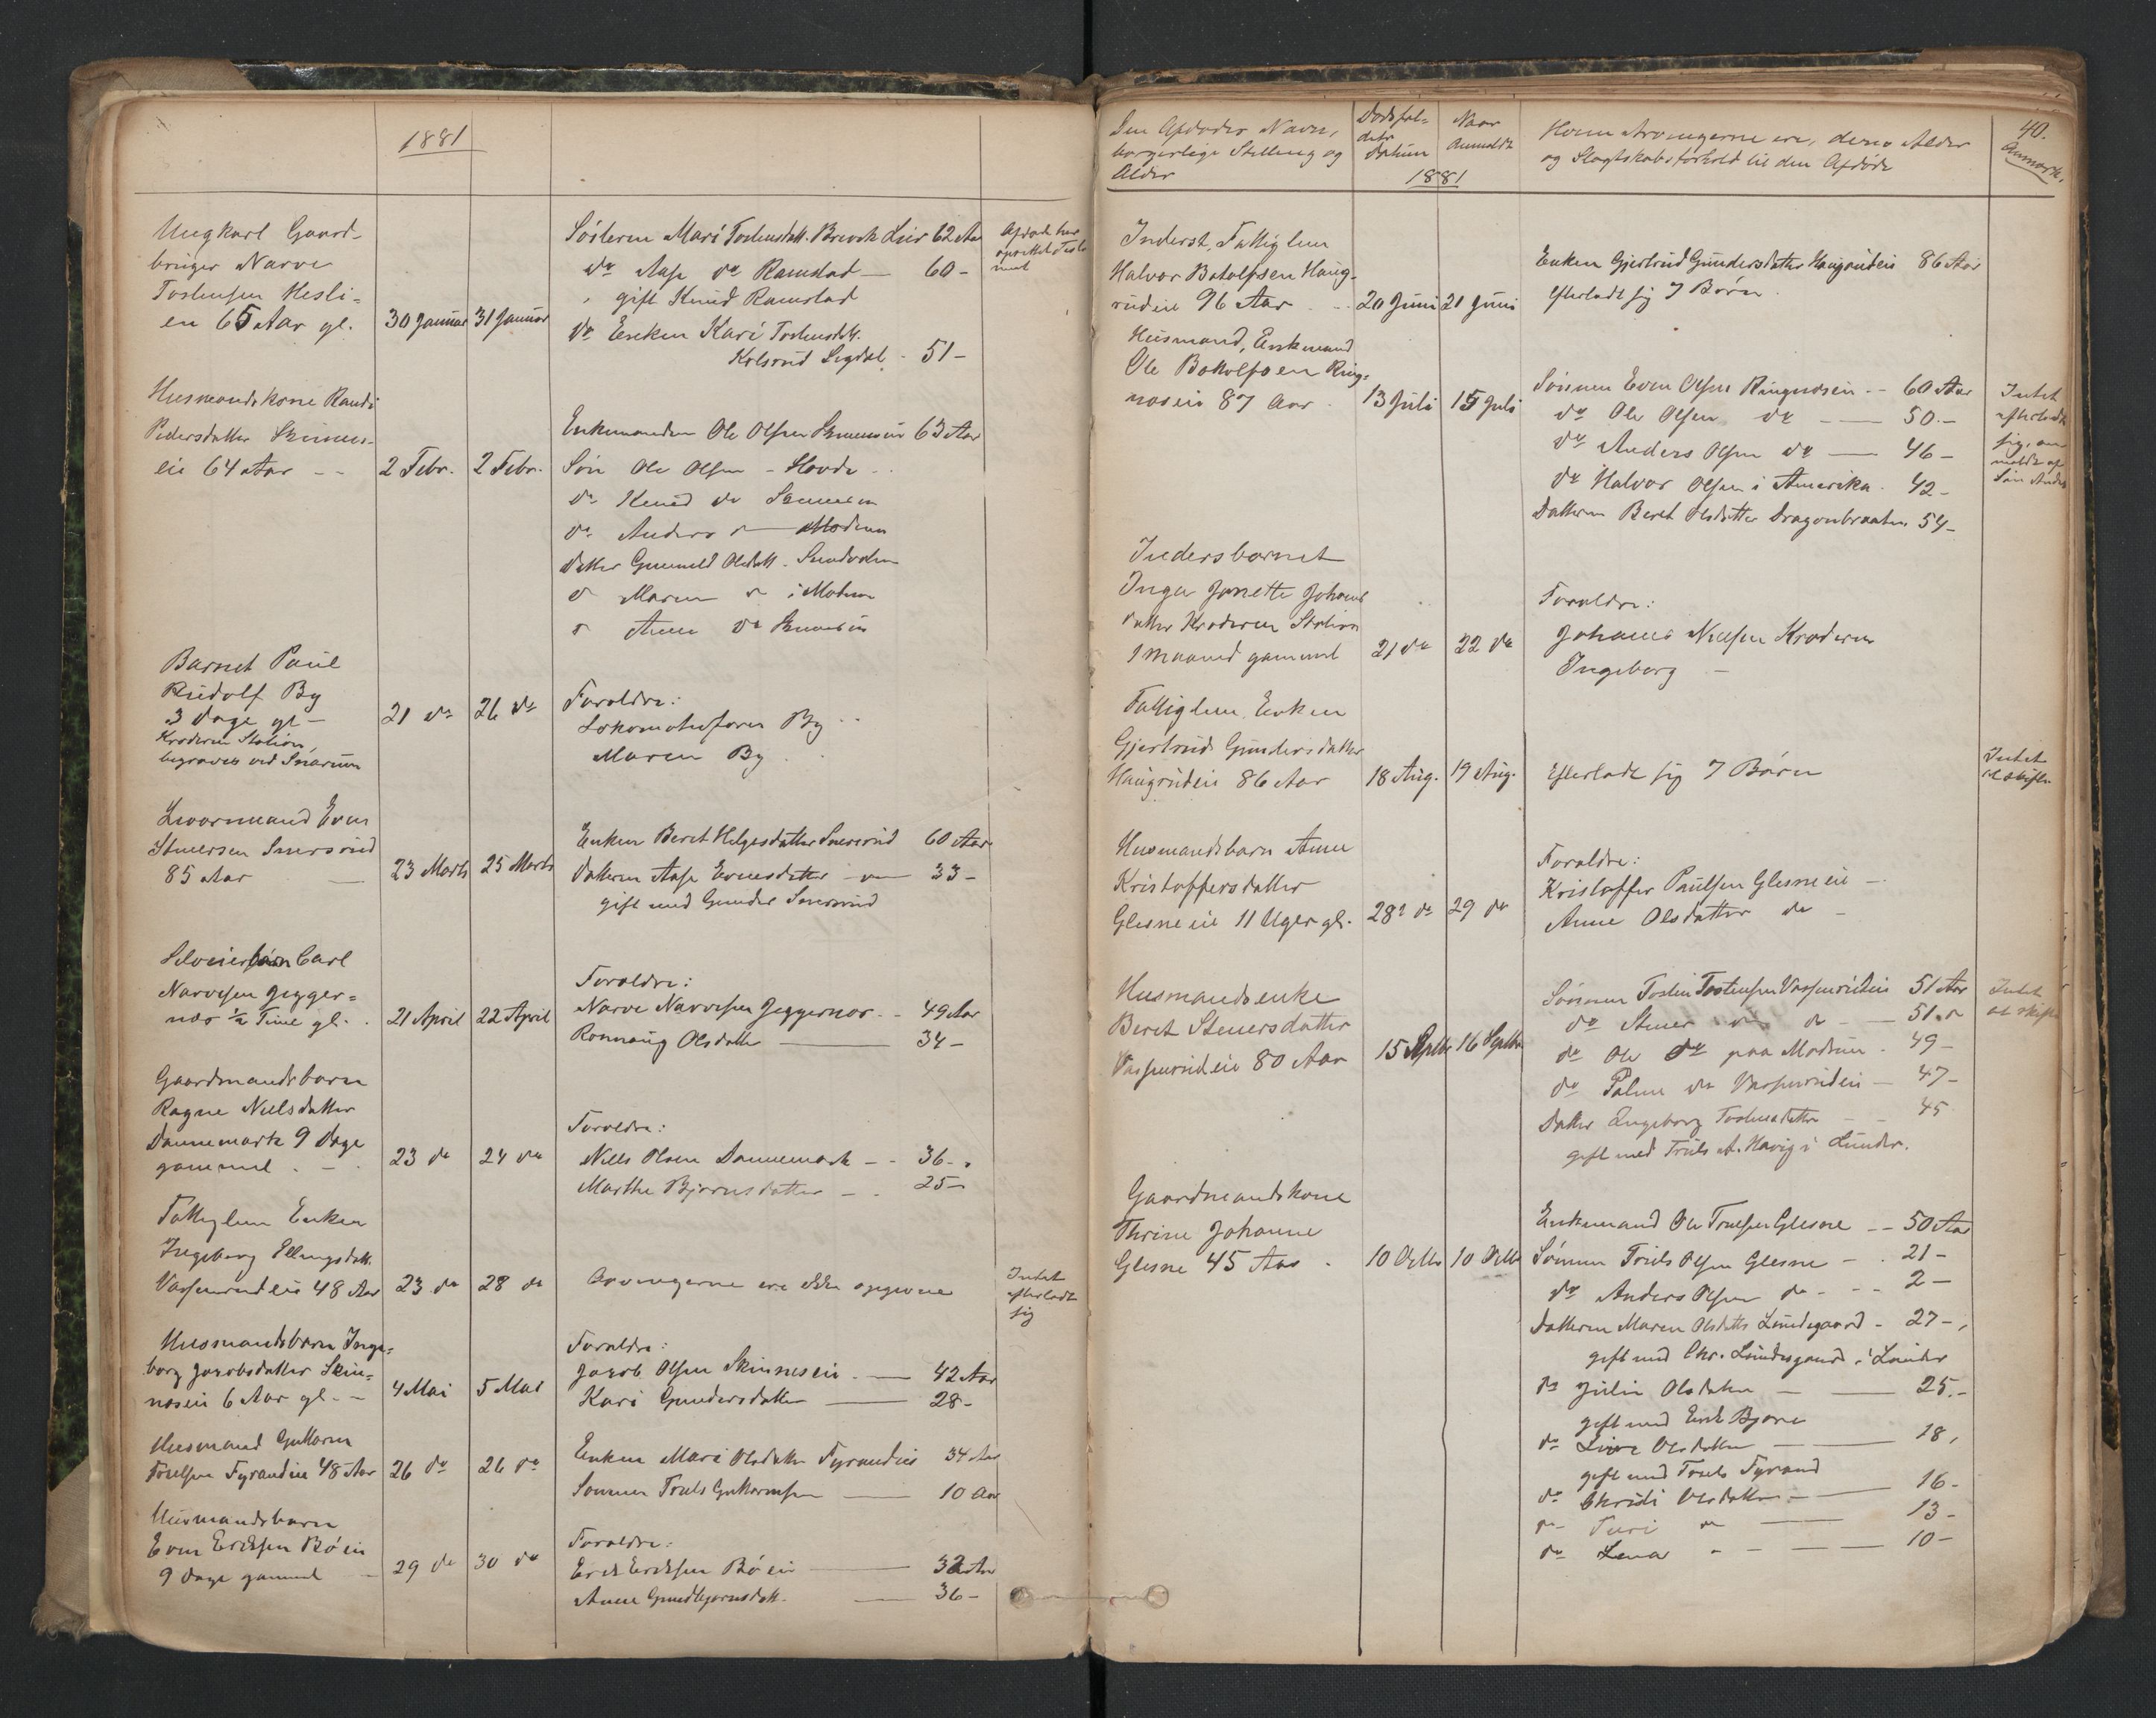 1881
Ungkarl Gaard-
bruger Narve
Tostensen Hesli-
en 65 Aar gl.
30 Januar
31 Januar
Søsteren Mari Tostensdatt. Brevik Lier 62 Aar
do Aase do Ramstad — 60 -
gift Knud Ramstad
do Enken Kari Tostensdtt.
Kolsrud Sigdal - 51 -
Afdøde har
oprettet Testa
ment
Husmandskone Randi
Pedersdatter Skinnes-
eie 64 Aar - -
2 Febr.
2 Febr.
Enkemanden Ole Olsen Skinneseie 63 Aar
Søn Ole Olsen - Hovde
do Knud do
do Anders - Modum
datter Gunnild Olsdatt.
d Maren i Modum
Anne do
Barnet Paul
Rudolf By
3 Dage gl -
Krøderen Station,
begraves ved Snarum
21 do
26 do
Forældre:
Lokomotivfører By
Maren By
Livørmand Even
Steenersen Snersrud
85 Aar —
23 Marts
25 Marts
Enken Beret Helgesdatter Snersrud 60 Aar
datteren Aase Evensdatter — 33 -
gift med Gunder Snersrud
Selveierbarn Carl
Narvesen Jegger-
næs ½ Time gl.
21 April
22 April
Forældre:
Narve Narvesen Jeggernæs - 49 Aar
Ronnaug Olsdatter — 34 -
Gaardmandsbarn
Ragne Nielsdatter
Dannemark 9 Dage
gammel
23 do
24 do
Forældre:
Niels Olsen Dannemark - - 36 -
Marthe Bjørnsdatter - 25 -
Fattiglem Enken
Ingeborg Ellingsdatt.
Vassenrudeie 48 Aar
23 do
28 do
Arvingerne ere ikke opgivne
Intet
efterladt
sig
Husmandsbarn Inge-
borg Jacobsdatter Skin-
neseie 6 Aar gl. -
4 Mai
5 Mai
Forældre:
Jacob Olsen Skinneseie — 42 Aar
Kari Gundersdatter — 28 -
Husmand Guttorm
Truelsen Fyrandeie 48 Aar
26 do
26 do
Enken Mari Olsdatter Fyrandeie 34 Aar
Sønnen Truls Guttormsen — 10 Aar
Husmandsbarn
Even Eriksen Bøeie
9 Dage gammel
29 do
30 do
Forældre:
Erik Eriksen Bøeie — 32 Aar
Anne Gundbjørnsdatt. — 36 -
Den Afdødes Navn,
borgerlige Stilling og
Alder
Dødsfal-
dets
Datum
Naar
Anmeldt
1881
Hvem Arvingerne ere, deres Alder
og Slægtskabsforhold til den Afdøde
40.
Anmærk.
Inderst, Fattiglem
Halvor Botolfsen Haug-
rudeie 96 Aar
20 Juni
21 Juni
Enken Gjertrud Gundersdatter Haugrudeie 86 Aar
Efterladt sig 7 Børn
Husmand, Enkemand
Ole Botolfsen Ring-
næseie 87 Aar
13 Juli
15 Juli
Sønnen Even Olsen Ringnæseie - 60 Aar
do Ole Olsen do — 50 -
do Anders Olsen do — 46 -
do Halvor Olsen i Amerika - 42 -
Datteren Beret Olsdatter Dragonbraaten 54 -
Intet
efterladt
sig, an-
meldt af
Søn Anders
Indersbarnet
Inga Janette Johans
datter Krøderen Station
1 Maaned gammel
21 do
22 do
Forældre:
Johannes Nielsen Krøderen
Ingeborg -
Fattiglem, Enken
Gjertrud Gundersdatter
Haugrudeie 86 Aar
18 Aug.
19 Aug.
Efterladt sig 7 Børn
Intet
at skifte.
Husmandsbarn Anne
Kristoffersdatter
Glesneeie 11 Uger gl.
28 do
29 do
Forældre:
Kristoffer Paulsen Glesneeie -
Anne Olsdatter do -
Husmandsenke
Beret Steenersdatter
Vassenrudeie 80 Aar
15 Septbr
16 Septbr
Sønnen Tosten Tostensen Vassenrudeie 51 Aar
do Steener do do - 51 -
do Ole do paa Modum - 49 -
do Palme do Vassenrudeie - 47 -
Datter Ingeborg Tostensdatter - 45
gift med Truls A. Havig i Lunder.
Intet
at skifte
Gaardmandskone
Thrine Johanne
Glesne 45 Aar
10 Octbr
10 Octbr
Enkemand Ole Truelsen Glesne - - 50 Aar
Sønnen Truls Olsen Glesne - 21 -
do Anders Olsen do - - 2 -
Datteren Maren Olsdatter Lundesgaard - 27 -
gift med Chr. Lundesgaard i Lunder
do Julie Olsdatter — 25 -
gift med Erik Bjøre
do Live Olsdatter — 18,
gift med Truls Fyrand
do Christi Olsdatter — 16 -
do Turi do — 13 -
do Lena - - — 10 -